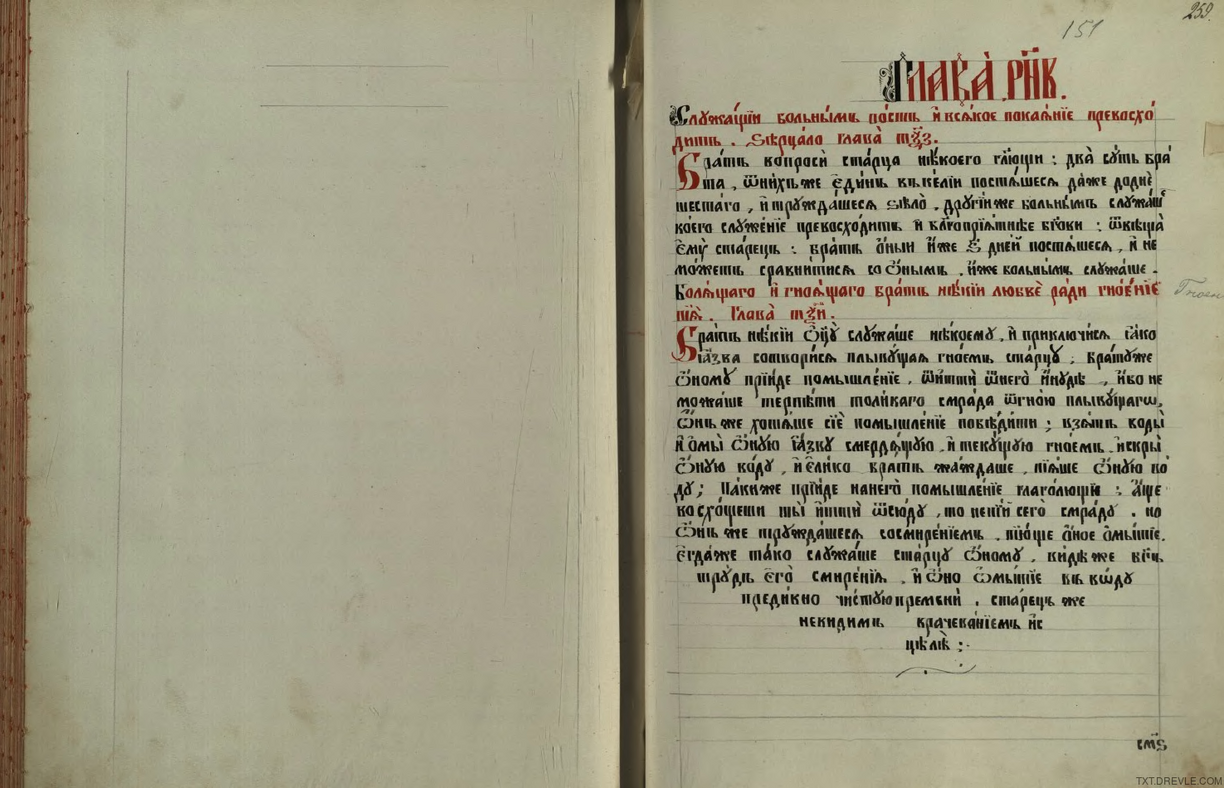 259.
151
Глава̀ рн҃в.
Служа́щїи больны́мъ по́стъ и҆ вся́кое покая́нїе превосхо́
дитъ . Ѕѣрца́ло глава̀ тѯ҃з.
Бра́тъ вопросѝ ста́рца нѣ́коего гл҃ющи : два̀ сꙋ́ть бра́
та , ѿ ни́хъ же є҆ди́нъ въ ке́лїи постя́шеся да́же до днѐ
шеста́го , и҆ трꙋжда́шеся ѕѣло̀ . дрꙋгі́и же больны́мъ слꙋжа́ш
коего слꙋже́нїе превосхо́дитъ и҆ бл҃гоприя́тнѣе бг҃ови : ѿвѣща̀
є҆мꙋ̀ ста́рецъ : бра́тъ о҆́ныи и҆́же ѕ҃ дне́й постя́шеся , и҆ не
мо́жетъ сравни́тися со ѻ҆́нымъ . и҆́же больны́мъ слꙋжа́ше .
Боля́щаго и҆ гноя́щаго бра́тъ нѣ́кїи любвѐ ра́ди гное́нїе
пїя̀ . Глава̀ тѯ҃и .
Бра́тъ нѣ́кїи ѻ҆ц҃ꙋ̀ слꙋжа́ше нѣ́коемꙋ . и҆ приключи́ся я҆́ко
я҆́зва сотвори́ся плывꙋ́щая гно́емъ ста́рцꙋ ; бра́тꙋ же
ѻ҆́номꙋ прїи́де помышле́нїе , ѿити́ ѿ него̀ и҆нꙋ́дѣ , и҆́бо не
можа́ше терпѣ́ти толи́каго смра́да ѿ гно́ю плывꙋ́щагѡ .
Ѻ҆́нъ же хотя́ше сїѐ помышле́нїе повѣди́ти ; взя́тъ воды̀
и҆ ѻ҆мы̀ ѻ҆́нꙋю я҆́звꙋ смердя́щꙋю . и҆ текꙋ́щꙋю гно́емъ . и҆ скры̀
ѻ҆́нꙋю во́дꙋ , и҆ є҆ли́ко бра́тъ жа́ждаше , пїя́ше ѻ҆́нꙋю во́
дꙋ ; Па́ки же прїи́де на него̀ помышле́нїе глаго́лющи : А҆́ще
восхо́щеши ты̀ и҆тти́ ѿсю́дꙋ , то не пі́й сего̀ смра́дꙋ . но
ѻ҆́нъ же трꙋжда́шеся со смире́нїемъ . пїю́ще ѻ҆́ное ѻ҆мы́тїе .
Є҆гда́ же та́ко слꙋжа́ше ста́рцꙋ ѻ҆́номꙋ . ви́дѣ же бг҃ъ
трꙋ́дъ є҆го̀ смире́нїя . и҆ ѻ҆́но ѻ҆мы́тїе въ во́дꙋ
предивно чи́стꙋю премѣнѝ . ста́рецъ же
невиди́мъ врачева́нїемъ и҆с
цѣлѣ̀ :·
см҃ѕ
TXT.DREVLE.COM